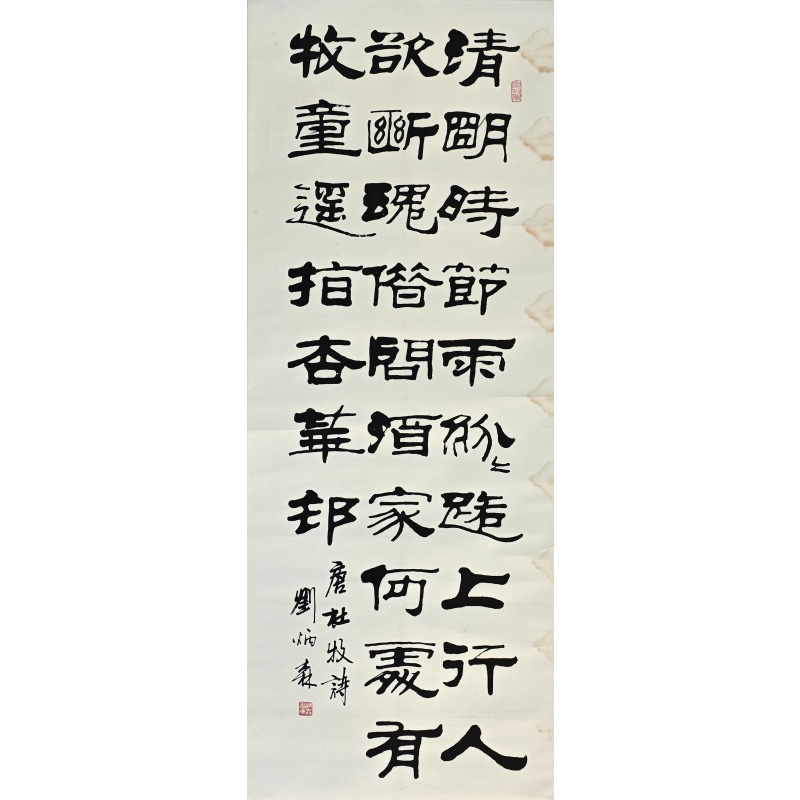 清明時節雨紛〻路上行人
欲斷魂借問酒家何處有
牧童遥指杏華邨
唐杜牧詩
劉炳森